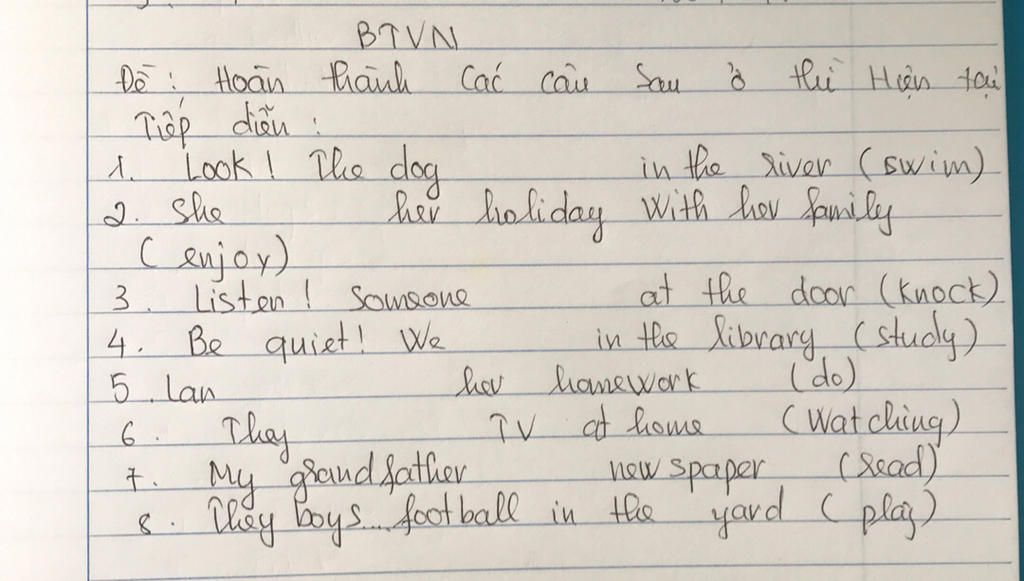 BTVN
Đề: Hoàn thành các câu sau ở thì Hiện tại
Tiếp diễn:
1. Look! The dog in the river (swim)
2. She her holiday with her family
(enjoy)
3. Listen! Someone at the door (knock)
4. Be quiet! We in the library (study)
5. Lan her homework (do)
6. They TV at home (Watching)
7. My grandfather newspaper (read)
8. They boys... football in the yard (play)